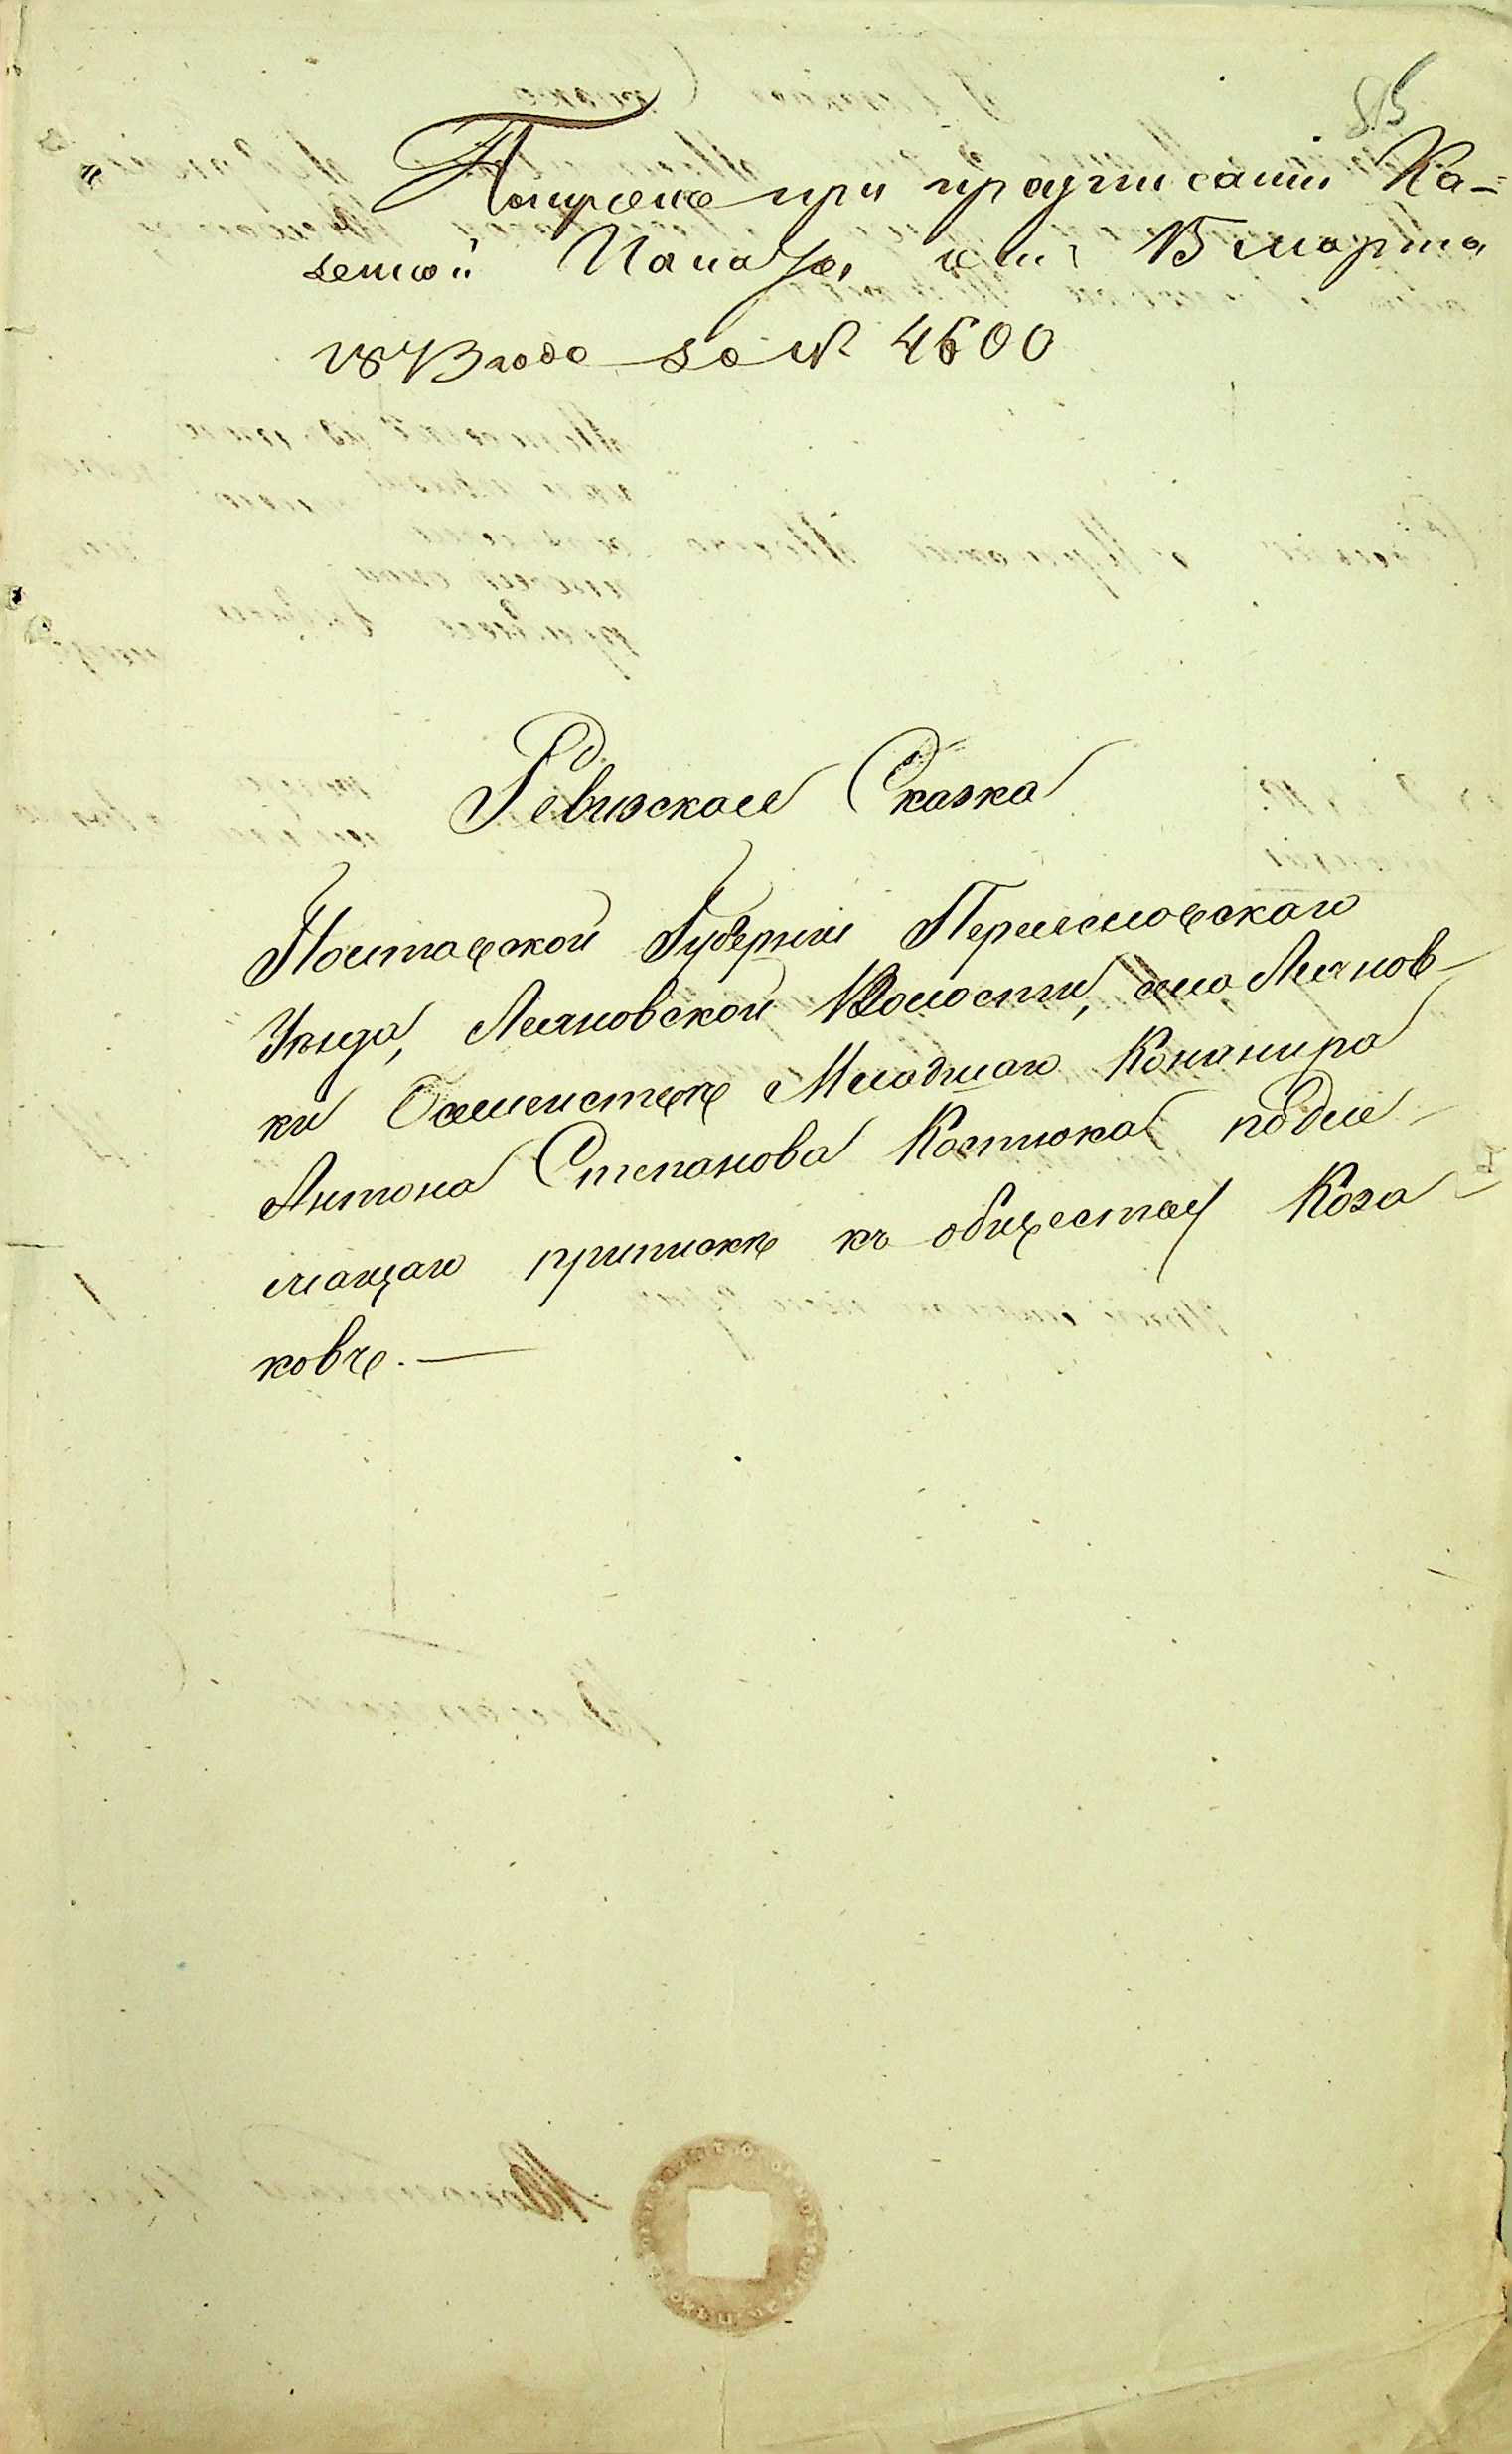 815
Получено при предписаніи Ка-
зенной Палаты, отъ 15 марта
1873 года за № 4600
Ревизская Сказка
Полтавской Губерніи Переяславского
Уѣзда, Лемяновской Волости, села Лемянов-
ки о семействѣ Младшаго Канонира
Антона Степанова Костюка подле-
жащаго припискѣ къ обществу Коза
ковъ. —